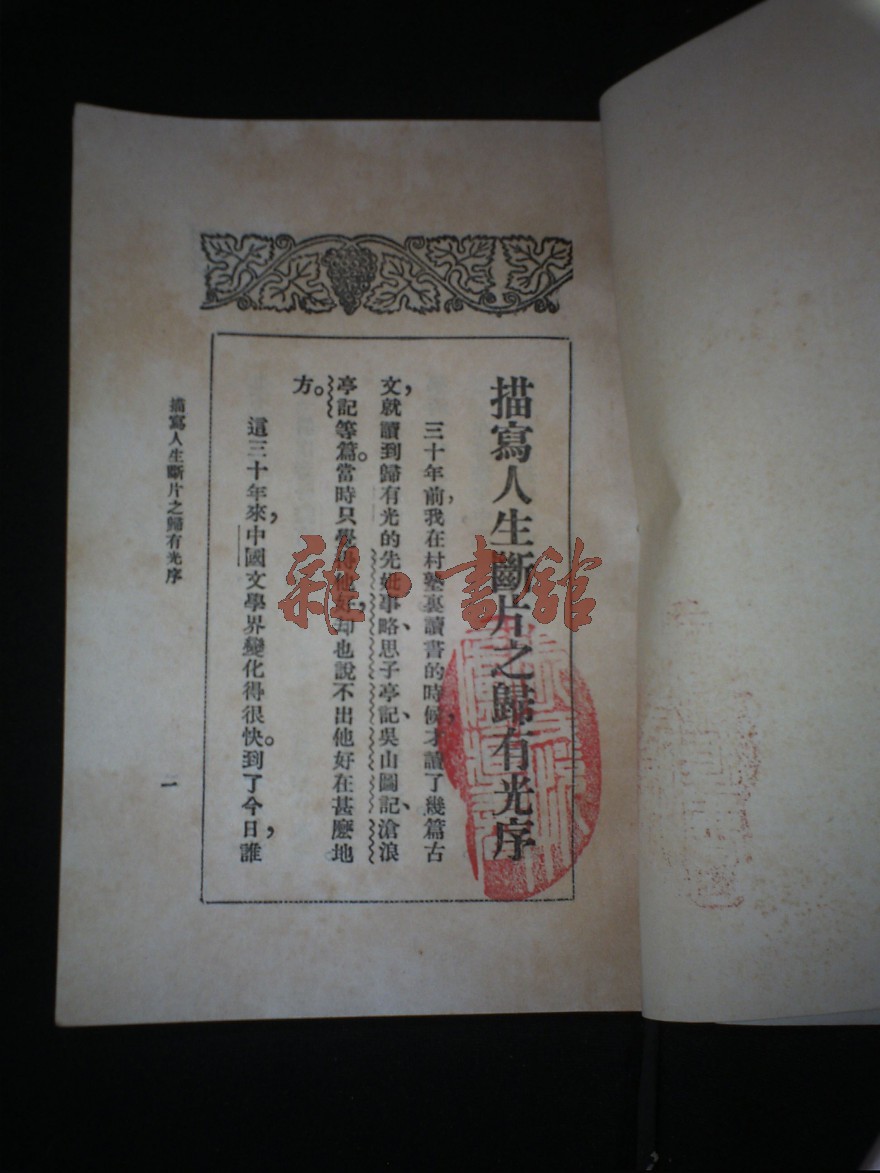 描寫人生斷片之歸有光序
三十年前，我在村塾裏讀書的時候，才讀了幾篇古
文，就讀到歸有光的先妣事略、思子亭記、吳山圖記、滄浪
亭記等篇。當時只覺得他好，却也說不出他好在甚麼地
方。
這三十年來，中國文學界變化得很快。到了今日，誰
描寫人生斷片之歸有光序
一
雜·書館